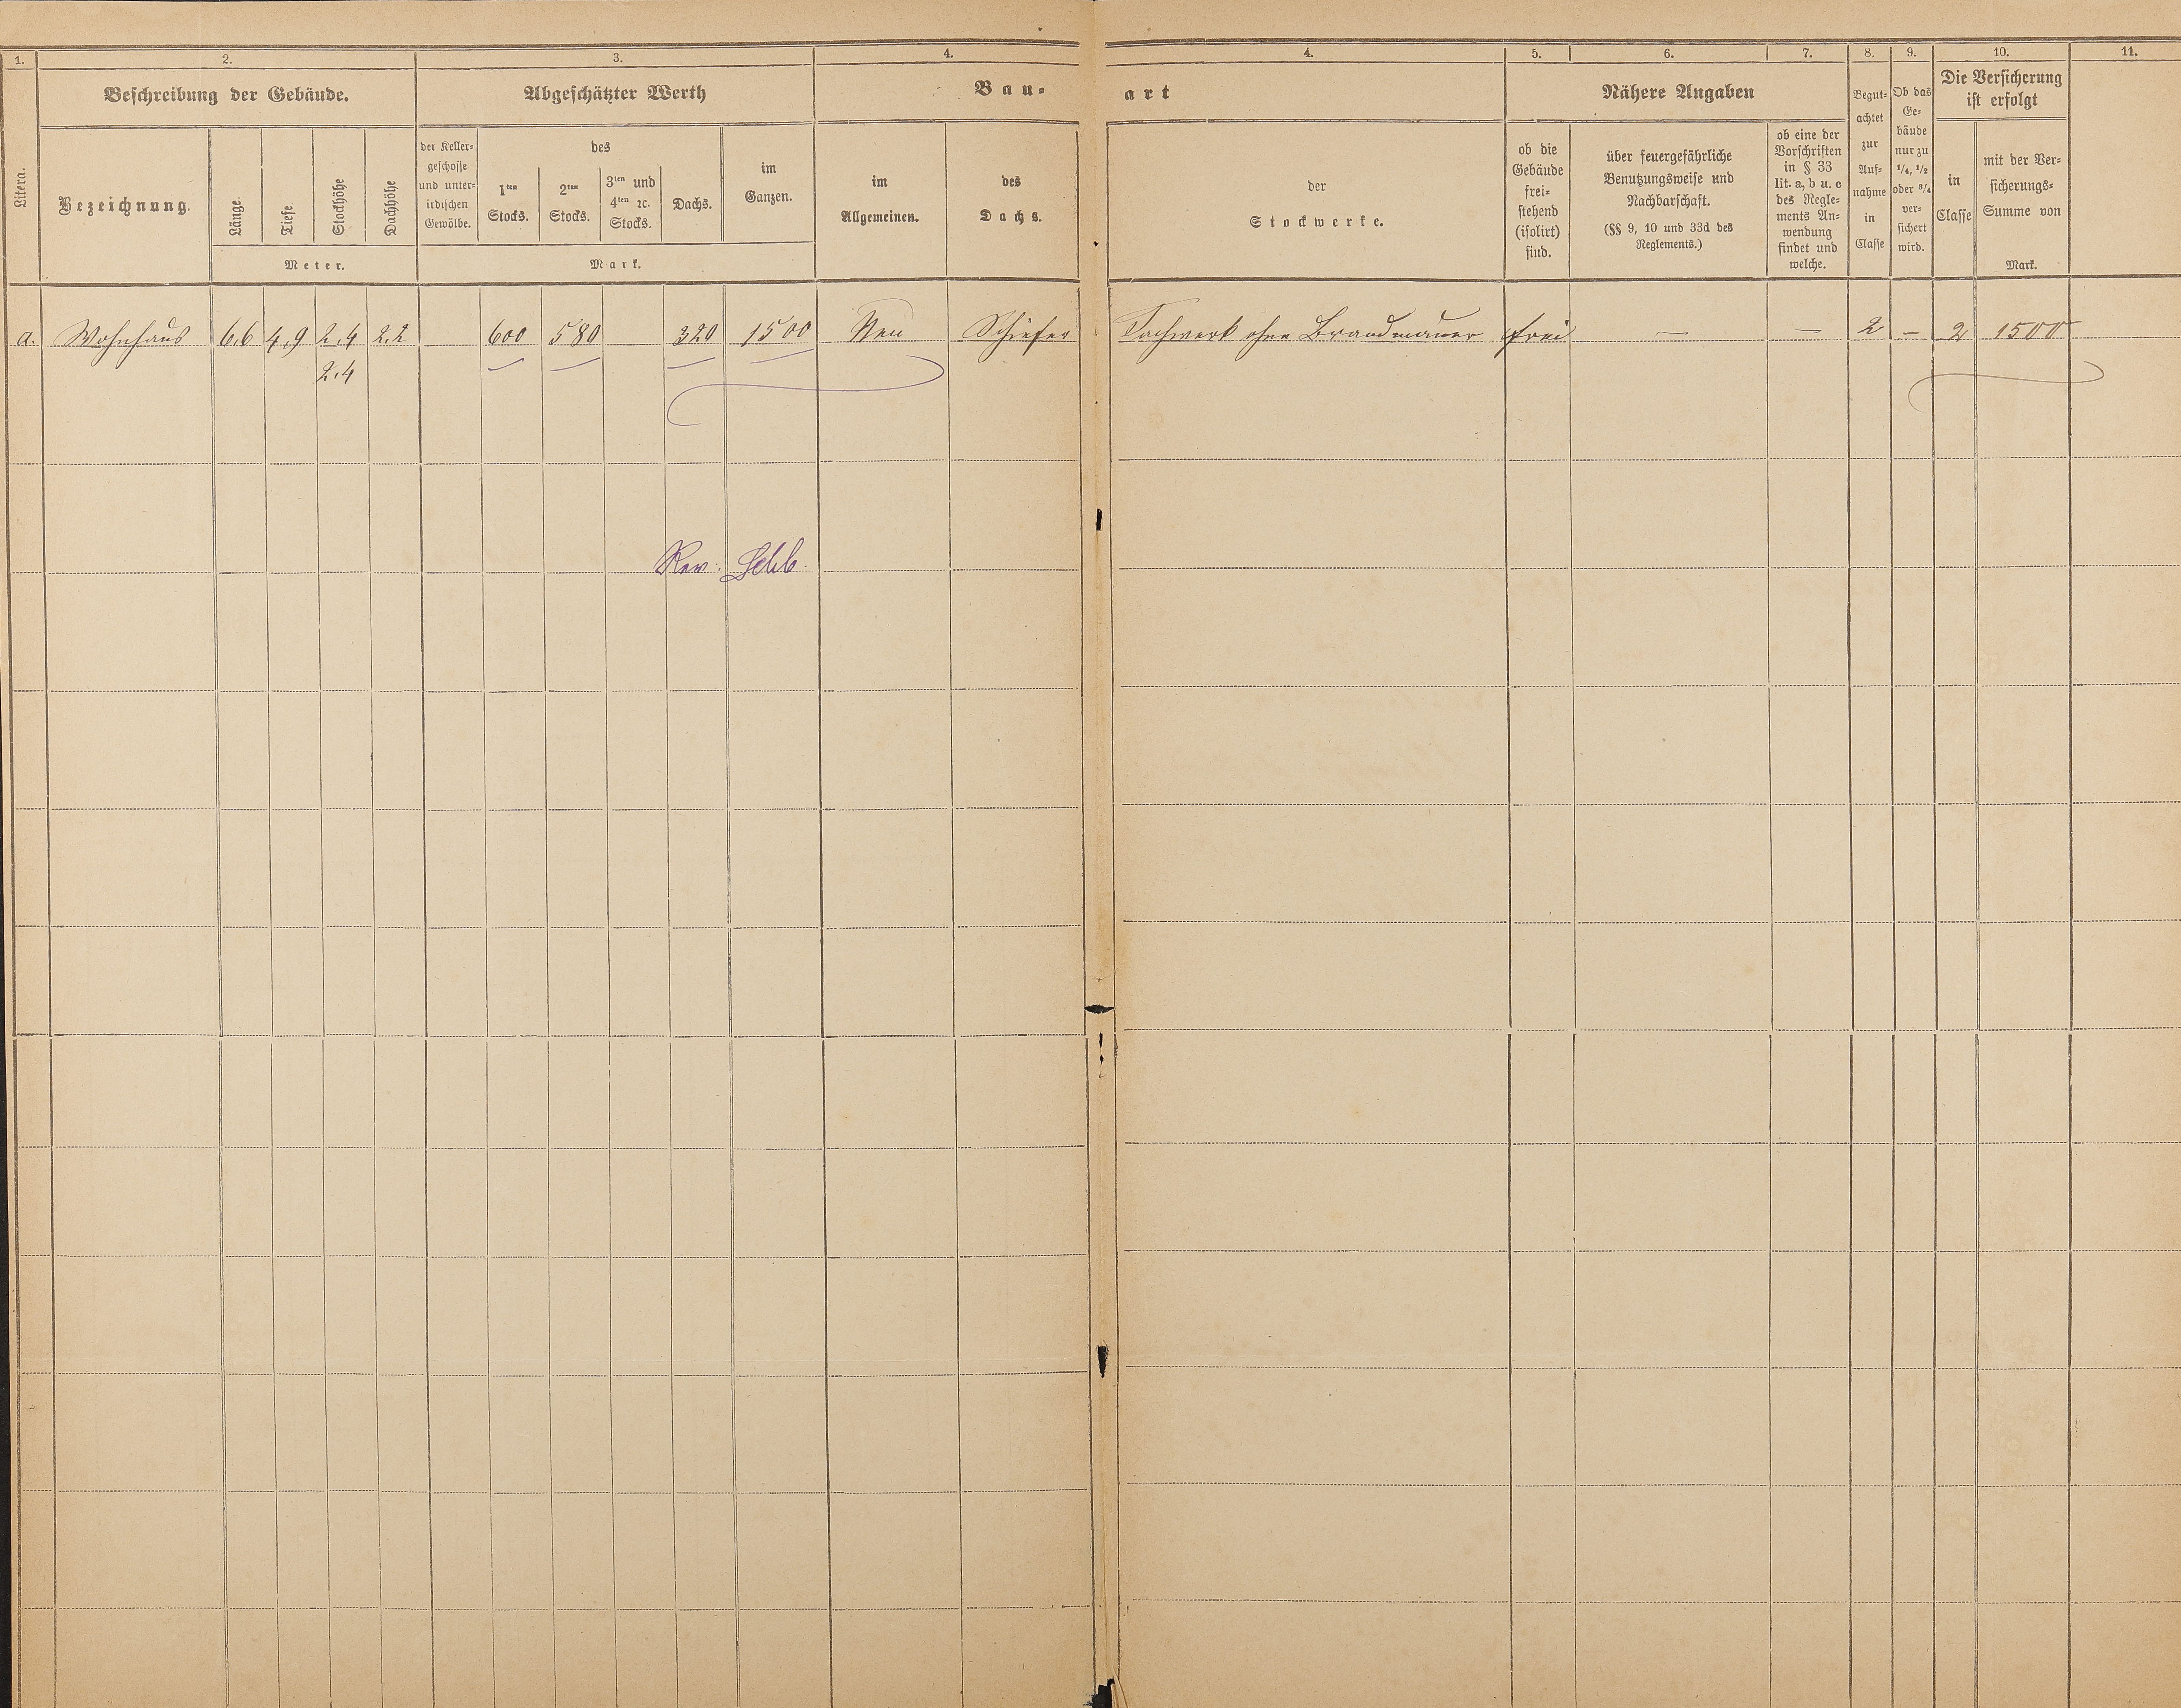 1. 2. 3. 4. 4. 5. 6. 7. 8. 9. 10. 11.
Beschreibung der Gebäude. Abgeschätzter Werth Bau- art Nähere Angaben
Litera.
Bezeichnung.
Länge.
Tiefe.
Stockhöhe
Dachhöhe
Meter.
der Keller-
geschosse
und unter-
irdischen
Gewölbe.
des
1ten
Stocks.
2ten
Stocks.
3ten und
4ten ꝛc.
Stocks.
Dachs.
im
Ganzen.
Mark.
im
Allgemeinen.
des
Dachs.
der
Stockwerke.
ob die
Gebäude
frei-
stehend
(isolirt)
sind.
über feuergefährliche
Benutzungsweise und
Nachbarschaft.
(§§ 9, 10 und 33d des
Reglements.)
ob eine der
Vorschriften
in § 33
lit. a, b u. c
des Regle-
ments An-
wendung
findet und
welche.
Begut-
achtet
zur
Auf-
nahme
in
Classe
Ob das
Ge-
bäude
nur zu
1/4, 1/2
oder 3/4
ver-
sichert
wird.
Die Versicherung
ist erfolgt
in
Classe
mit der Ver-
sicherungs-
Summe von
Mark.
a. Wohnhaus 6,6 4,9 2,4 2,2 600 580 320 1500 Neu Schiefer Fachwerk ohne Brandmauer frei — — 2 — 2 1500
2,4
Rev.